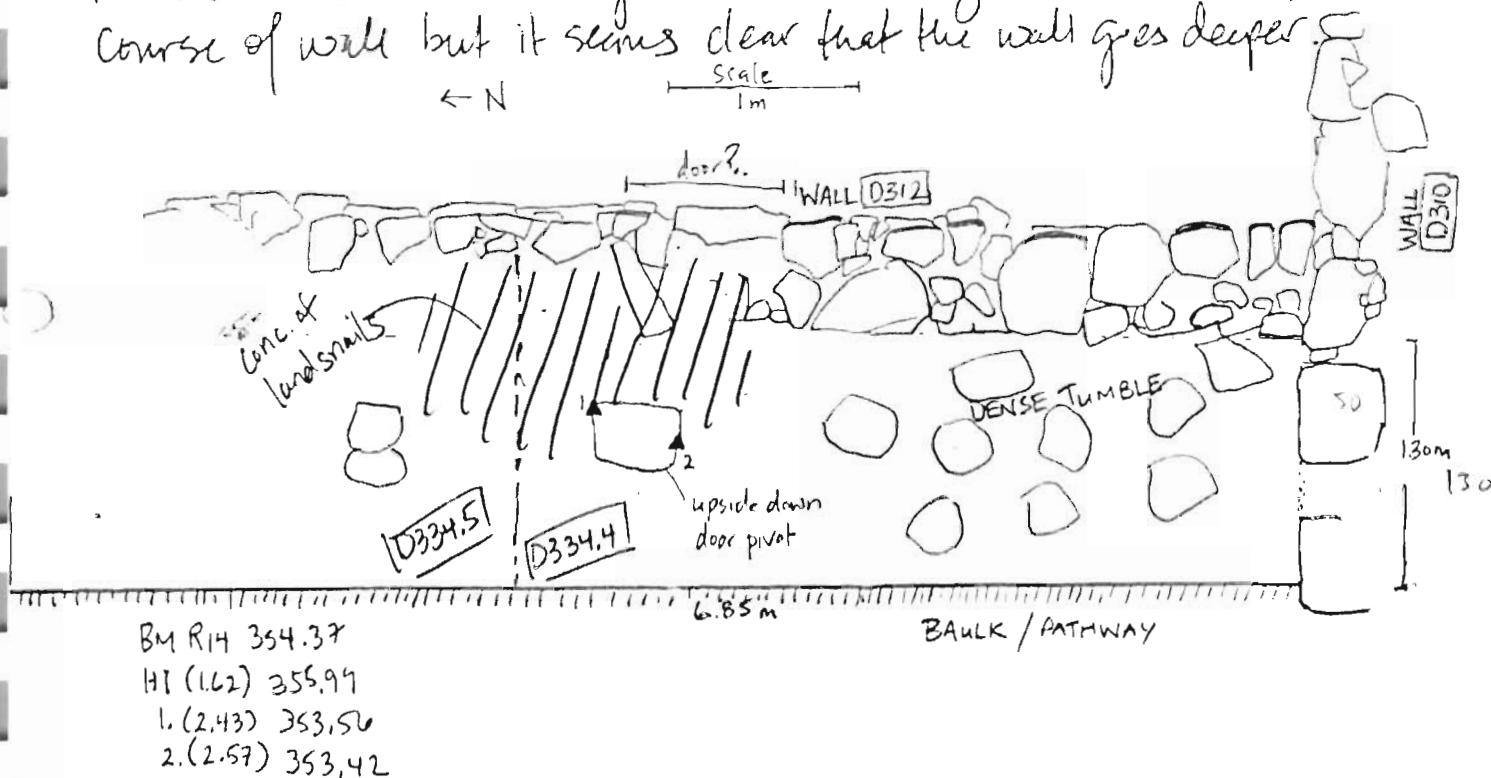 course of wall but it seems clear that the wall goes deeper.
scale
← N
1m
door?
WALL D312
WALL
D310
conc. of
landsnails
DENSE TUMBLE
50
1
2
1.30m
130
upside down
door pivot
D334.5
D334.4
6.85 m
BAULK / PATHWAY
BM R14 354.37
HI (1.62) 355.99
1. (2.43) 353.56
2. (2.57) 353.42